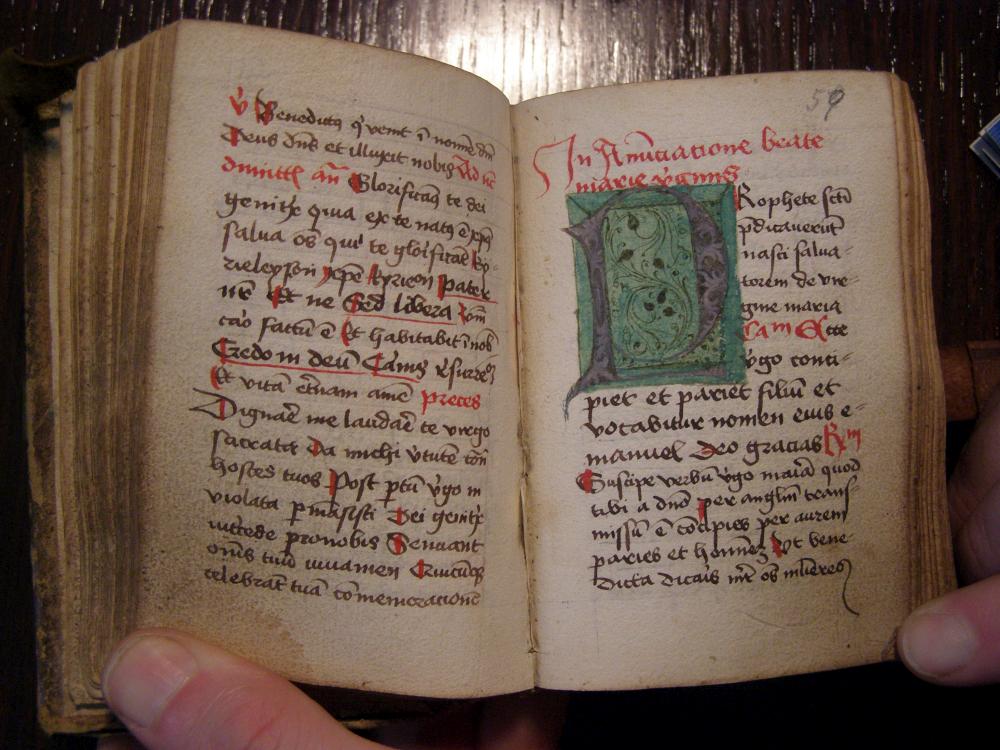 v̄ Benedict9 q̇ venit ī nomīe dn̄i
Deus dn̄s et illuxit nobis Ad nc̄
dimittꝭ an̄ Glorificam9 te dei
genitx̄ quia ex te nat9 ē xp̄s
salua os̄ qui te glorificāt ky-
rieleyson xp̄e kyrieon Pater
nr̄ Et ne Sed libera
caō factū ē Et habitabit ī nob
Credo in deū Carnis resurrec̄
Et vitā et̄nam amē preces
Dignaē me laudaē te virgo
sacrata Da michi v̇tutē con̄
hostes tuos Post ptū v̇go in
violata pmāsisti Dei genitx̄
intcede pro nobis Senciant
oēs tuū iuuamen Quicūq3
celebrāt tuā cōmemoracionē
59
In Anūciacione beate
marie v̇ginis
PRophete scī
p̄dicauerūt
nasci salua-
torem de vir-
gine maria
Cam Ecce
v̇go conci-
piet et pariet filiū et
vocabitur nomen eius e-
manuel Deo gracias Rm
Suscipe verbū v̇go maīa quod
tibi a dn̄o per anglm̄ trans-
missū ē cōcipies per aurem
paries et homīnē Vt bene-
dicta dicaīs int̄ os̄ mlieres